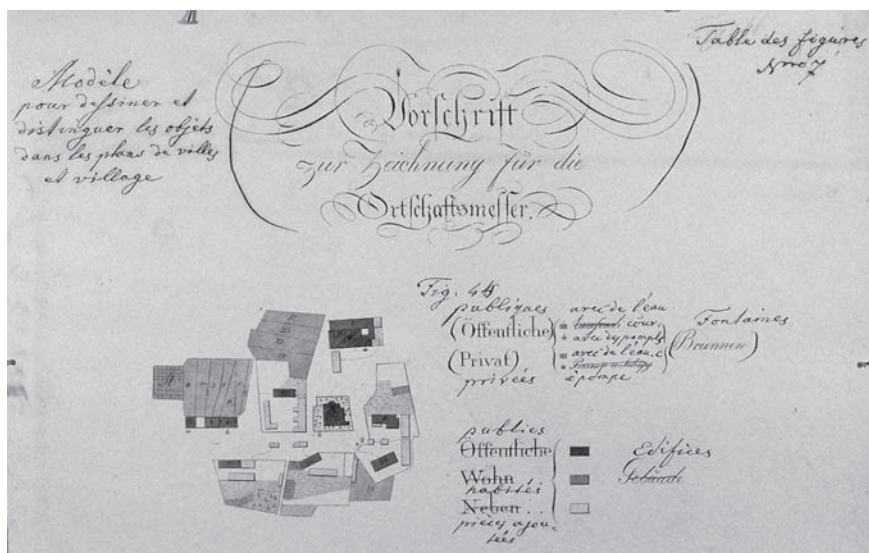 Modèle
pour dessiner et
distinguer les objets
dans les plans de villes
et village
Vorschrift
zur Zeichnung für die
Ortschaftsmesser.
Table des figures
Nro 7
Fig. 44
publiques
(Öffentliche)
(Privat)
privées
avec de l'eau
cour.
avec des pompes
avec de l'eau c
à pompe
Fontaines
(Brunnen)
publics
Öffentliche
Wohn
habités
Neben . .
pièces ajou-
tées
Edifices
Gebäude